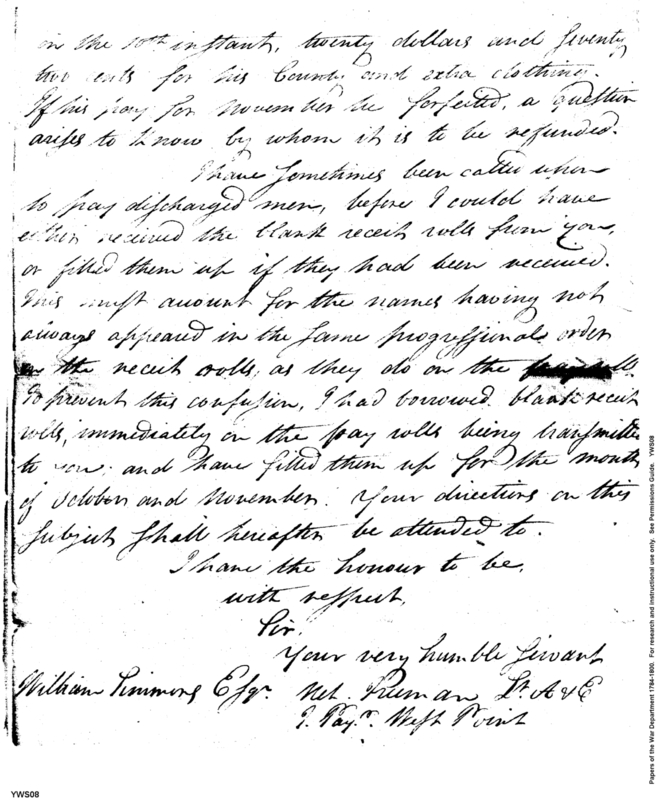 on the 10th instant, twenty dollars and seventy
two cents for his bounty and extra clothing.
If his pay for November be forfeited, a question
arises to know by whom it is to be refunded.
I have sometimes been called upon
to pay discharged men, before I could have
either received the blank receit rolls from you,
or filled them up if they had been received.
This must account for the names having not
always appeared in the same progressional order
on the receit rolls, as they do on the
To prevent this confusion, I had borrowed blank receit
rolls, immediately on the pay rolls being transmitted
to you; and have filled them up for the months
of October and November. Your directions on this
subject shall hereafter be attended to.
I have the honour to be,
with respect,
Sir,
Your very humble Servant
William Simmons Esqr. Net. Freeman Lt. A & E
Paymr. West Point
YWS08
Papers of the War Department 1784-1800. For research and instructional use only. See Permissions Guide. YWS08